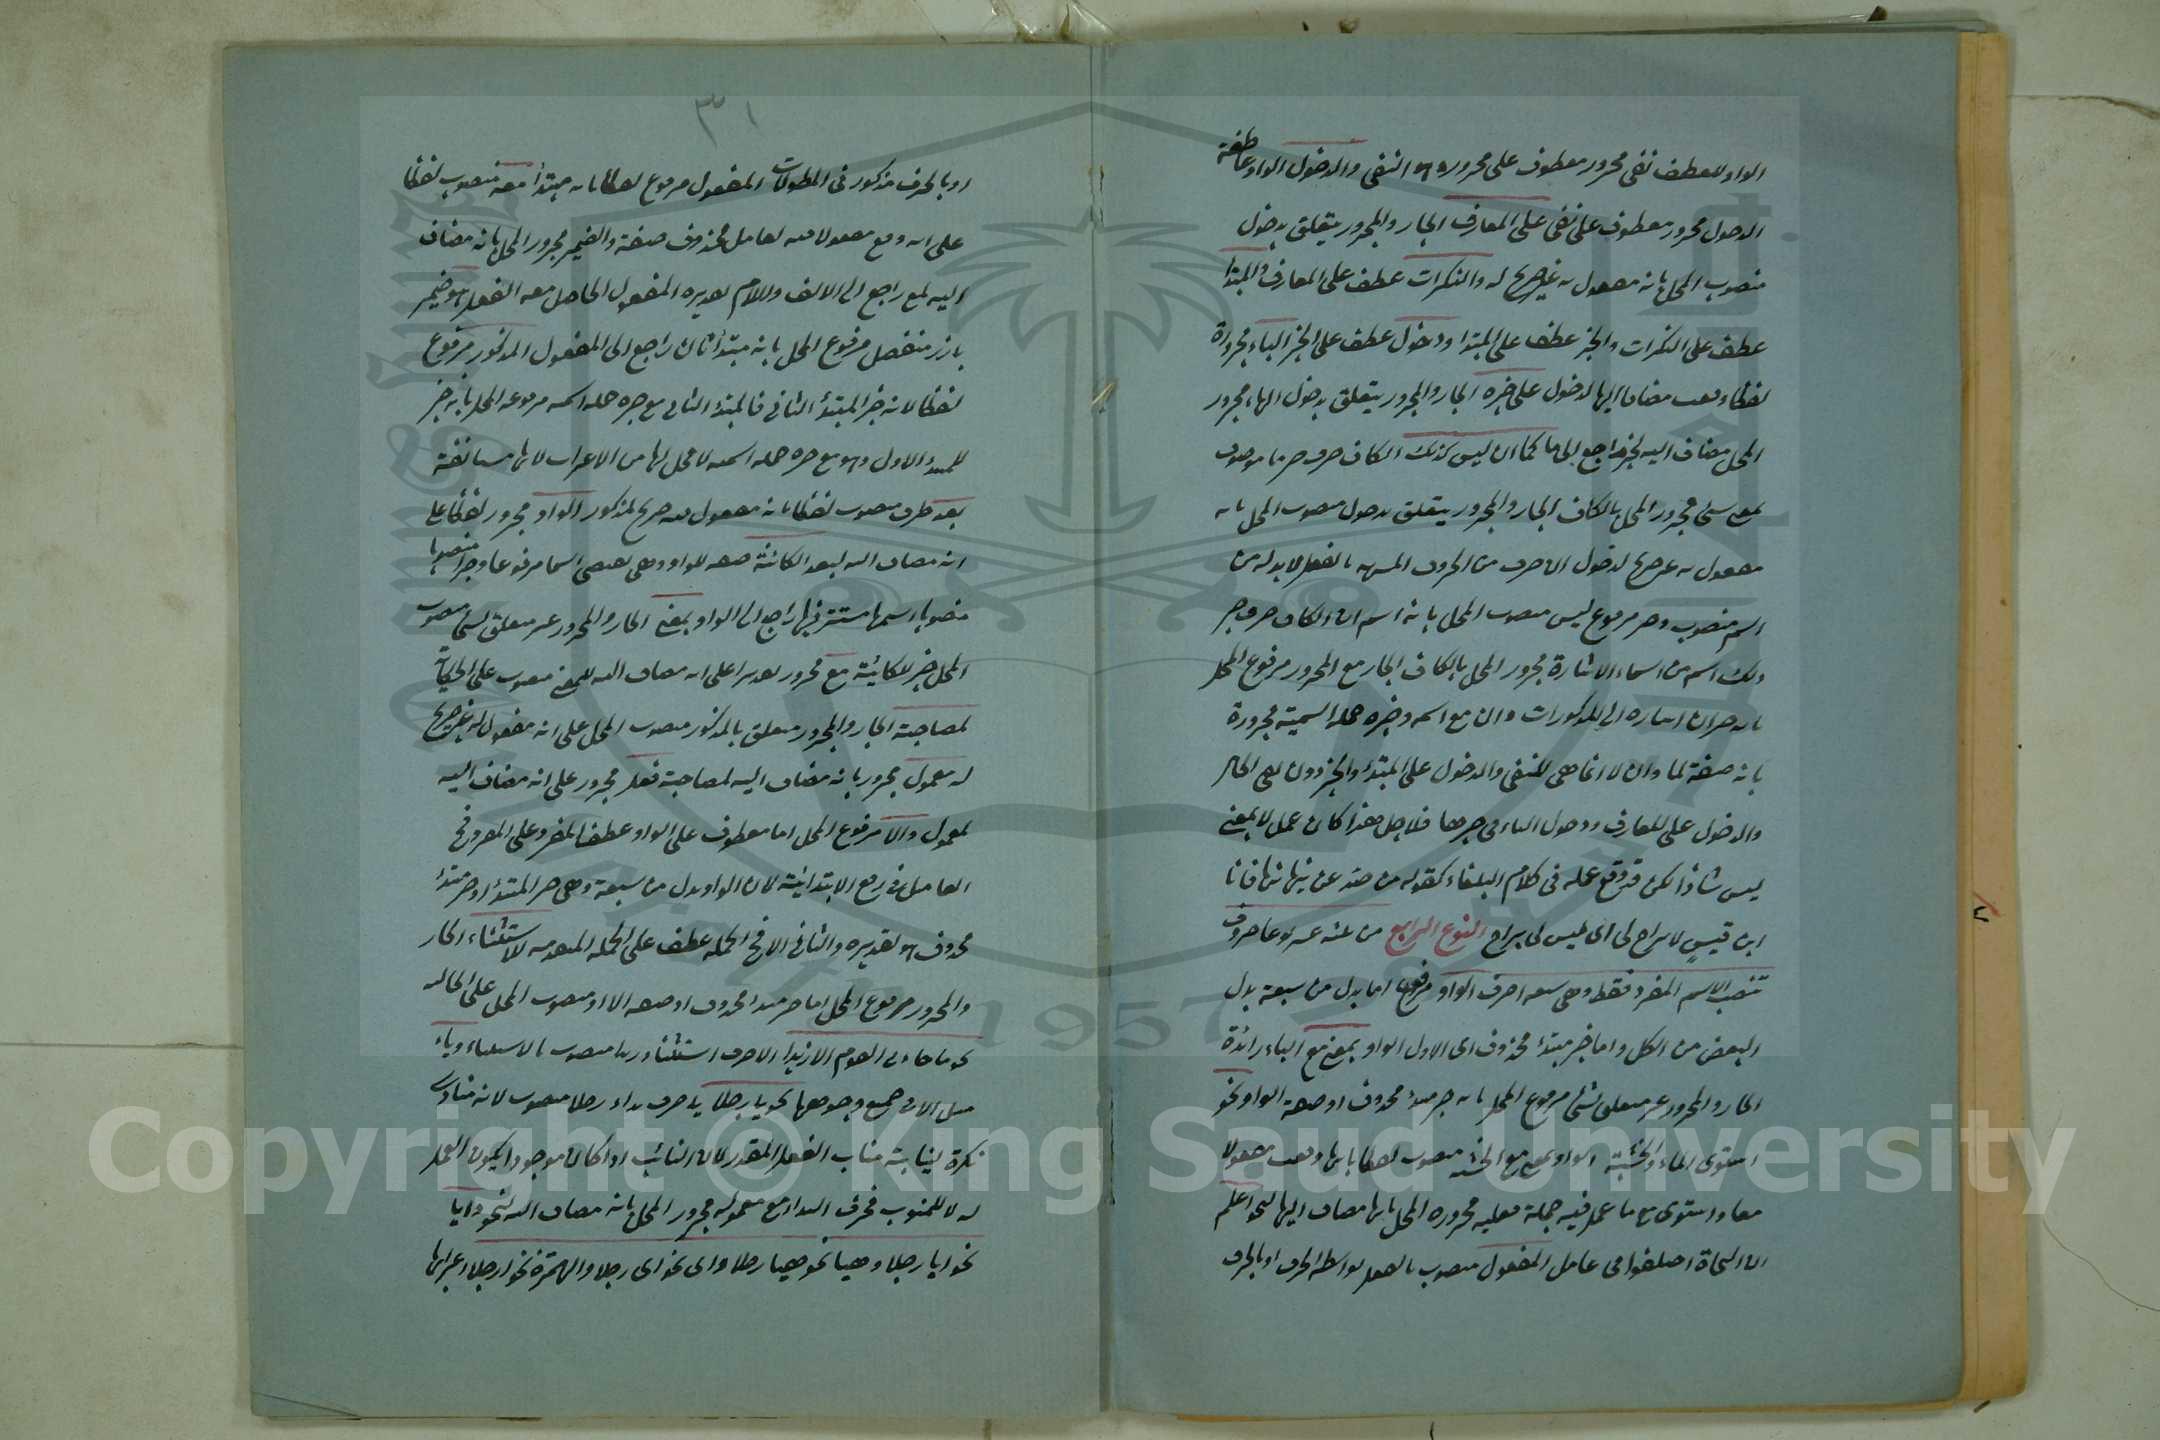 الواو للعطف نفى مجرور معطوف على مجرور وهو النفى والدخول الواو عاطفة
الدخول مجرور معطوف على نفى على المعارف الجار والمجرور يتعلق بدخول
منصوب المحل بانه مفعول به غير صريح له والنكرات عطف على المعارف والمبتدا
عطف على النكرات والخبر عطف على المبتدا ودخول عطف على الخبر الباء مجرورة
لفظا وقعت مضافا اليها لدخول على خبره الجار والمجرور يتعلق بدخول الهاء مجرور
المحل مضاف اليه لخبر راجع الى ما كما ان ليس كذلك الكاف حرف جر ما موصوف
بمعنى شئ مجرور المحل بالكاف الجار والمجرور يتعلق بدخول منصوب المحل بانه
مفعول به غير صريح لدخول ان حرف من الحروف المشبهه بالفعل لا بد له من
اسم منصوب وخبر مرفوع ليس منصوب المحل بانه اسم ان الكاف حرف جر
ذلك اسم من اسماء الاشارة مجرور المحل بالكاف الجار مع المجرور مرفوع المحل
بانه خبر ان اشاره الى المذكورات وان مع اسمه وخبره جملة اسمية مجرورة
بانه صفة لما وان لا انما هى للنفى والدخول على المبتدء والخبر دون نفى الحال
والدخول على المعارف ودخول الباء فى خبرها فلاجل هذا كان عمل لا بمعنى
ليس شاذا لكن قد وقع عمله فى كلام البلغاء كقوله من صد عن نيرانها فانا
ابن قيس لا براح لى اى ليس لى براح النوع الرابع من ثلثه عشر نوعا حروف
تنصب الاسم المفرد فقط وهى سبعه احرف الواو مرفوع اما بدل من سبعة بدل
البعض من الكل واما خبر مبتدء محذوف اى الاول الواو بمعنى مع الباء زائدة
الجار والمجرور غير متعلق بشئ مرفوع المحل بانه خبر مبتدء محذوف او صفة الواو نحو
استوى الماء والخشبة الواو بمعنى مع الخشبه منصوب لفظا بانها وقعت مفعولا
معا واستوى مع ما عمل فيه جملة فعليه مجروره المحل بانها مضاف اليها لنحو اعلم
ان النحاة اختلفوا فى عامل المفعول منصوب بالفعل بواسطة الحرف او بالحرف
٣١
او بالحرف مذكور فى المطولات المفعول مرفوع لفظا بانه مبتدأ معه منصوب لفظا
على انه وقع مفعولا فيه لعامل محذوف صفة والضمير مجرور المحل بانه مضاف
اليه لمع راجع الى الالف واللام تقديره المفعول الحاصل معه الفعل هو ضمير
بارز منفصل مرفوع المحل بانه مبتدأ ثان راجع الى المفعول المذكور مرفوع
لفظا لانه خبر المبتدأ الثانى فالمبتدأ الثانى مع خبره جملة اسمية مرفوعه المحل بانه خبر
للمبتدء الاول وهو مع خبره جملة اسمية لا محل لها من الاعراب لانها مستانفة
بعد ظرف منصوب لفظا بانه مفعول فيه صريح لمذكور الواو مجرور لفظا على
انه مضاف اليه لبعد الكائنة صفه للواو وهى تقتضى اسما مرفوعا وخبرا منصوبا
منصوبا اسمها مستتر فيها راجع الى الواو بمعنى الجار والمجرور غير متعلق بشئ منصوب
المحل خبر للكائنة مع مجرور تقديرا على انه مضاف اليه للمعنى منصوب على الحكاية
لمصاحبة الجار والمجرور متعلق بالمذكور منصوب المحل على انه مفعول له غير صريح
له معمول مجرور بانه مضاف اليه لمصاحبة فعل مجرور على انه مضاف اليه
لمعمول والا مرفوع المحل اما معطوف على الواو عطف المفرد على المفرد فح
العامل فى رفع الابتدائية لان الواو بدل من سبعة وهى خبر المبتدأ او خبر مبتدأ
محذوف هو تقديره والثانى الا فح الجملة عطف على الجمله المتقدمه للاستثناء الجار
والمجرور مرفوع المحل اما خبر مبتدا محذوف او صفه الا او منصوب المحل على الحاليه
نحو ما جاءنى القوم الا زيدا الا حرف استثناء زيدا منصوب بالاستثناء وياء
مثل الا فى جميع وجوهها نحو يا رجلا يا حرف نداء رجلا منصوب لانه منادى
نكرة لنيابته مناب الفعل المقدر لان النائب اذا كان موجودا يكون العمل
له لا للمنوب فحرف النداء مع معموله مجرور المحل بانه مضاف اليه لنحو وايا
نحو ايا رجلا وهيا نحو هيا رجلا واى نحو اى رجلا والهمزة نحو ارجلا اعرابها
Copyright © King Saud University
1957